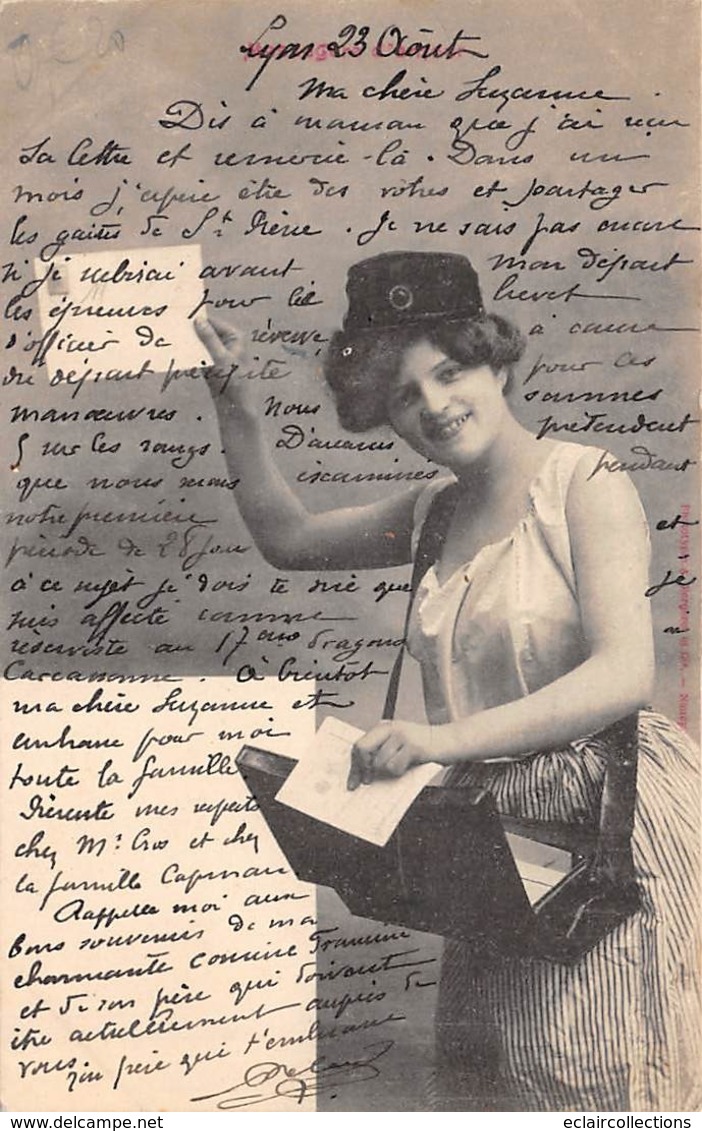 Lyon 23 Août
Ma chère Suzanne
Dis à maman que j'ai reçu
sa lettre et remercie-là. Dans un
mois j'espère être des vôtres et partager
les gaités de St. Pierre. Je ne sais pas encore
si je subirai avant mon départ
les épreuves pour le brevet
d'officier de réserve à cause
du départ précipité pour les
manœuvres. Nous sommes
5 sur les rangs. D'avance prétendent
que nous serons examinés pendant
notre première
période de 28 jours et
à ce sujet je dois te dire que je
suis affecté comme
réserviste au 17eme Dragons à
Carcassonne. à bientôt
ma chère Suzanne et
embrasse pour moi
toute la famille
Présente mes respects
chez Mr. Cros et chez
la famille Capman
Rappelle moi aux
bons souvenirs de ma
charmante cousine
et de son père qui doivent
être actuellement auprès de
vous.
Ton frère qui t'embrasse
eclaircollections